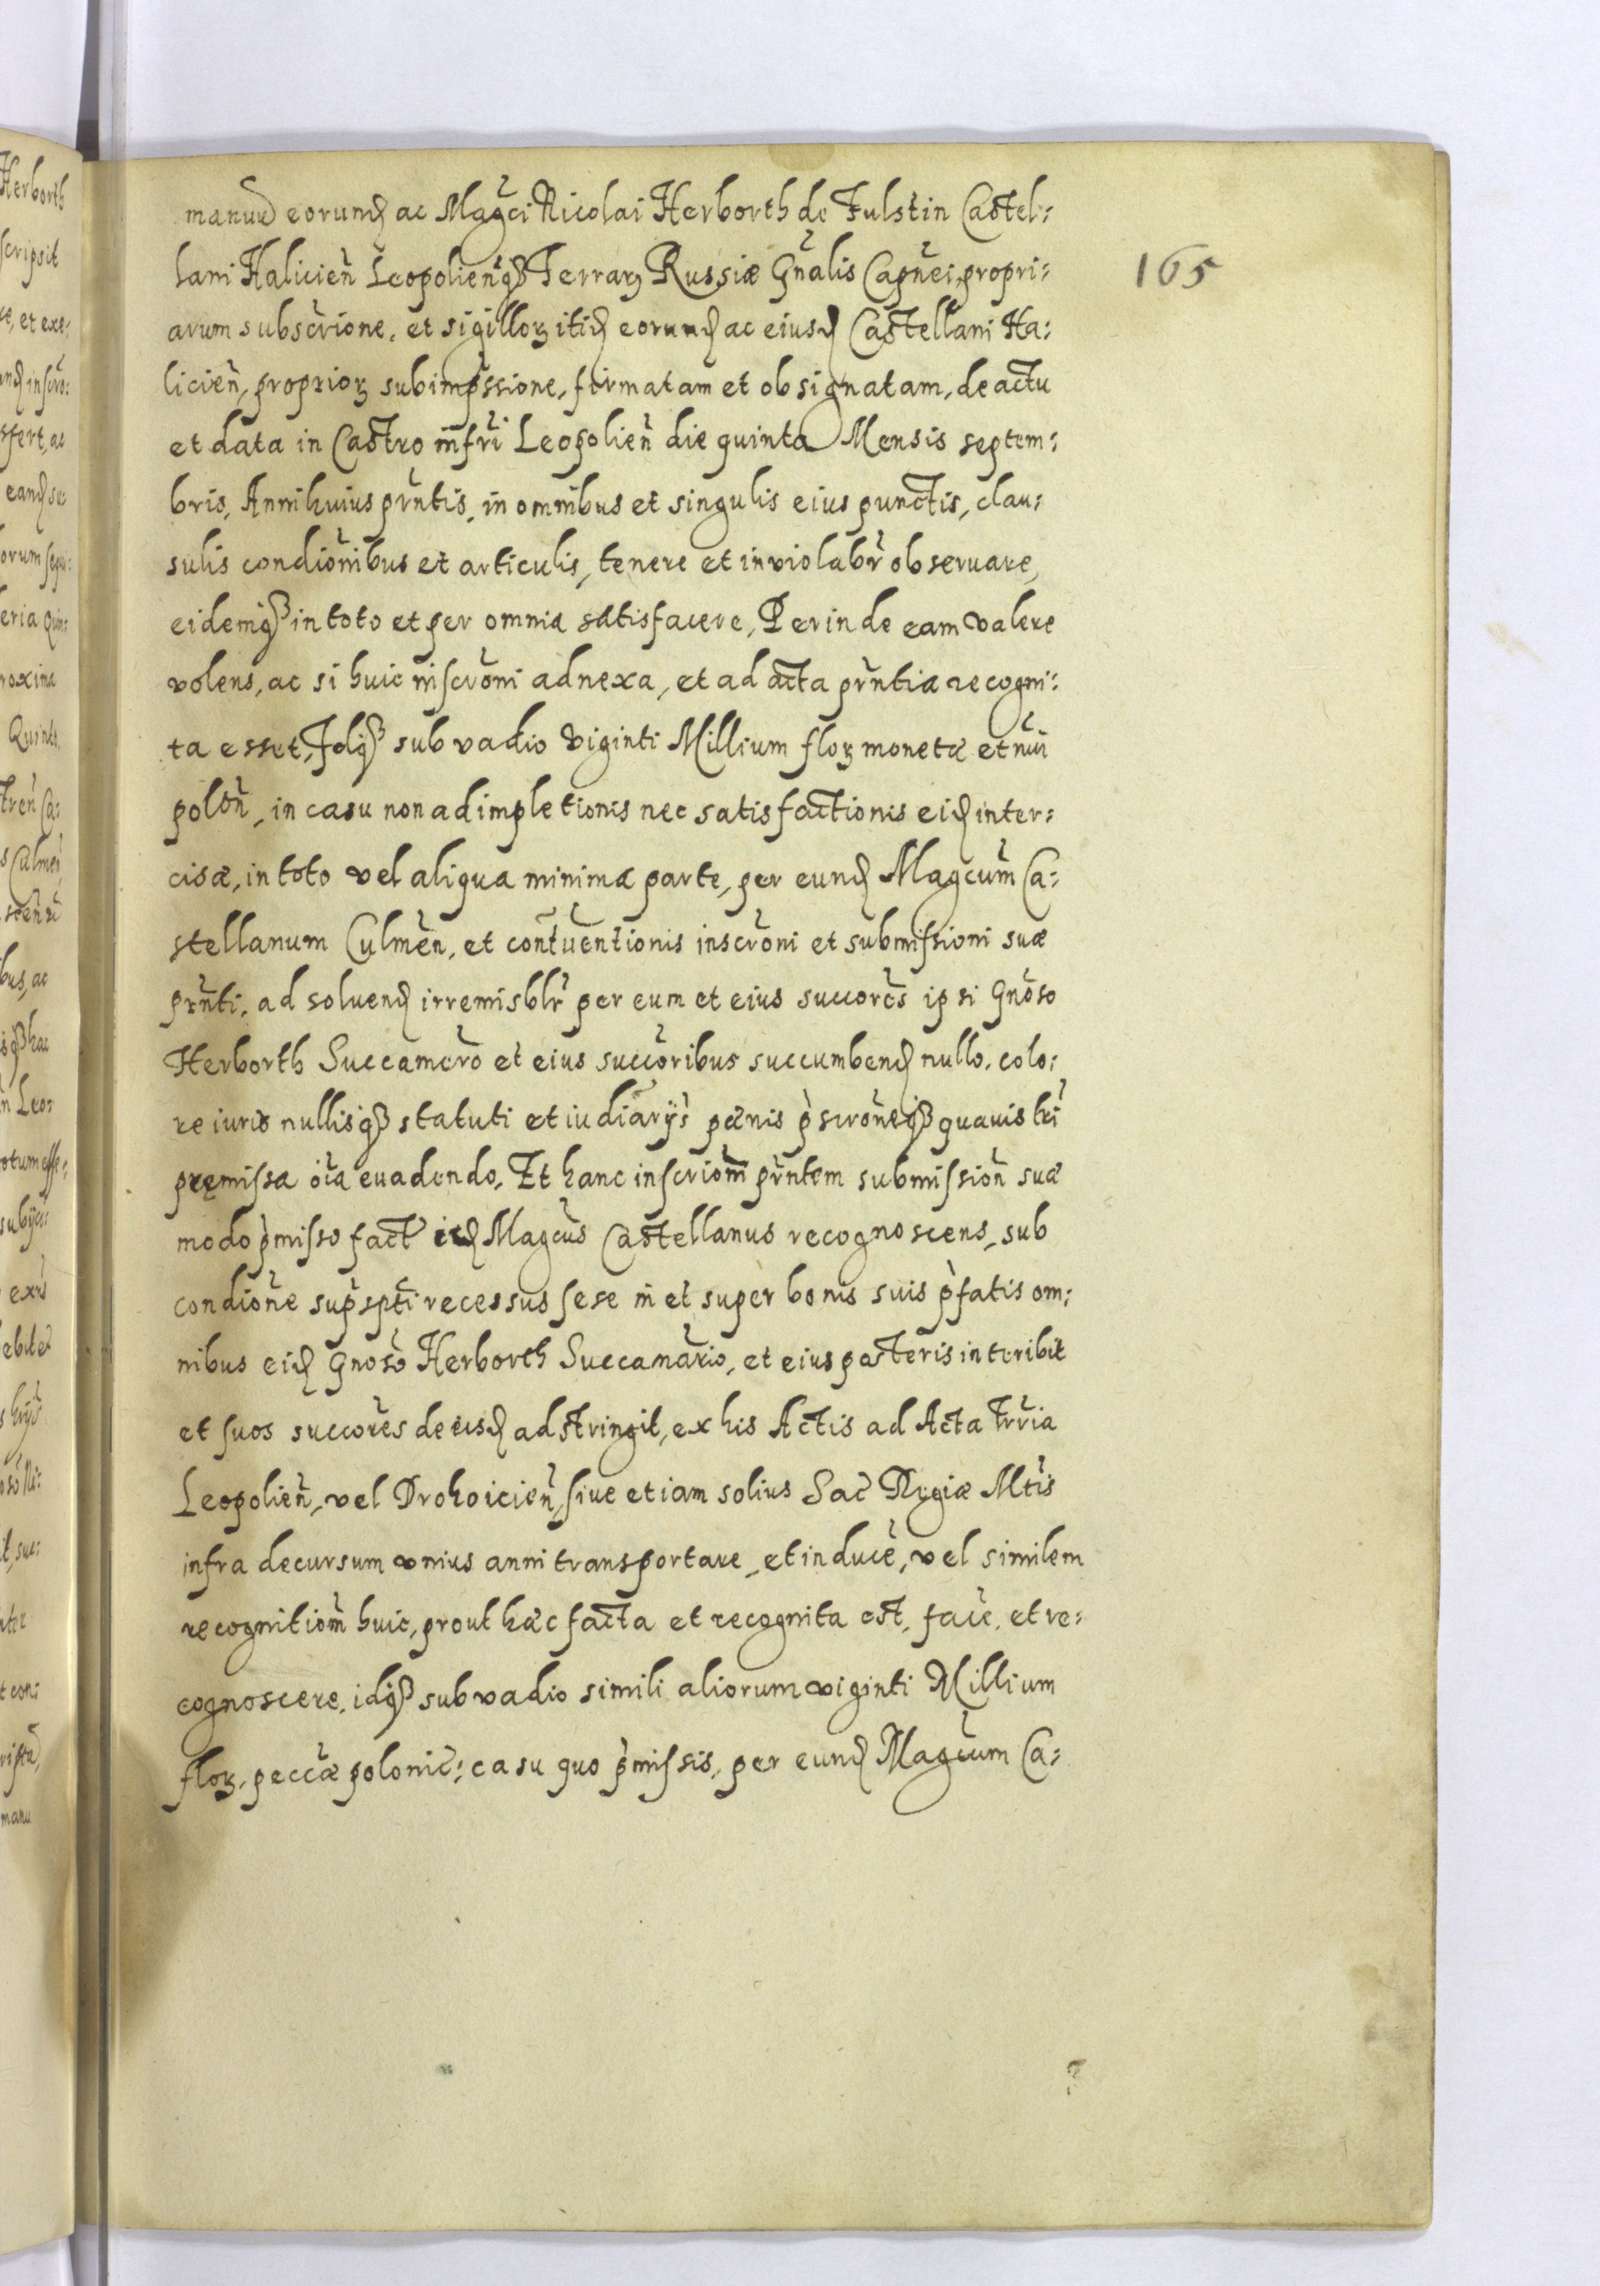 manuu eorund ac Magci Nicolai Herborth de Fulstin Castel:
lani Halicien̄ Leopolien̄qȝ Terrarꝝ Russiæ Gn̄alis Capn̄ei, propri:
165
arum subscr̄ione, et sigillorꝝ itid eorund ac eiusd Castellani Ha:
licien̄, propriorꝝ subimp̄ssione, firmatam et obsignatam, de actu
et data in Castro inf̄ri Leopolien̄ die quinta Mensis septem:
bris, Anni huius pr̄ntis, in omnibus et singulis eius punctis, clau:
sulis condio̅nibus et articulis, tenere et inviolabr̄ obseruare,
eidemqȝ in toto et per omnia satisfacere, Perinde eam valere
volens, ac si huic inscro̅ni adnexa, et ad acta pr̄ntia recogni:
ta esset, Idqȝ sub vadio viginti Millium florꝝ monetæ et nūi
polon̄, in casu non adimpletionis nec satisfactionis eid inter:
cisæ, in toto vel aliqua minima parte, per eund Magcum Ca:
stellanum Culmen̄, et cont̄uentionis inscro̅ni et submissioni suæ
pr̄nti, ad soluend irremisblr̄ per eum et eius succor̄es ipsi Gno̅so
Herborth Succamer̄o et eius succo̅ribus succumbend nullo, colo:
re iuris nullisqȝ statuti et iudiar̄ys pænis p̄scro̅neqȝ quauis lr̄i
pręmissa o̅ia euadendo, Et hanc inscrio̅m pr̄ntem submission̄ suæ
modo p̄misso fact̄ id Magcus Castellanus recognoscens, sub
condio̅ne sup̄sp̄ti recessus sese in et super bonis suis p̄fatis om:
nibus eid Gnoso̅ Herborth Succamar̄io, et eius posteris inscribit
et suos succor̄es de eisd adstringit, ex his Actis ad Acta Tr̄ria
Leopolien̄, vel Drohoicien̄, siue etiam solius Sac̄ Regiæ Mt̄is
infra decursum vnius anni transportare, et induce̅, vel similem
recognitio̅m huic, prout hæc facta et recognita est, fac̄e, et re:
cognoscere, idqȝ sub vadio simili aliorum viginti Millium
florꝝ, pecc̄æ polonic̄: casu quo p̄missis, per eund Magcum Ca: